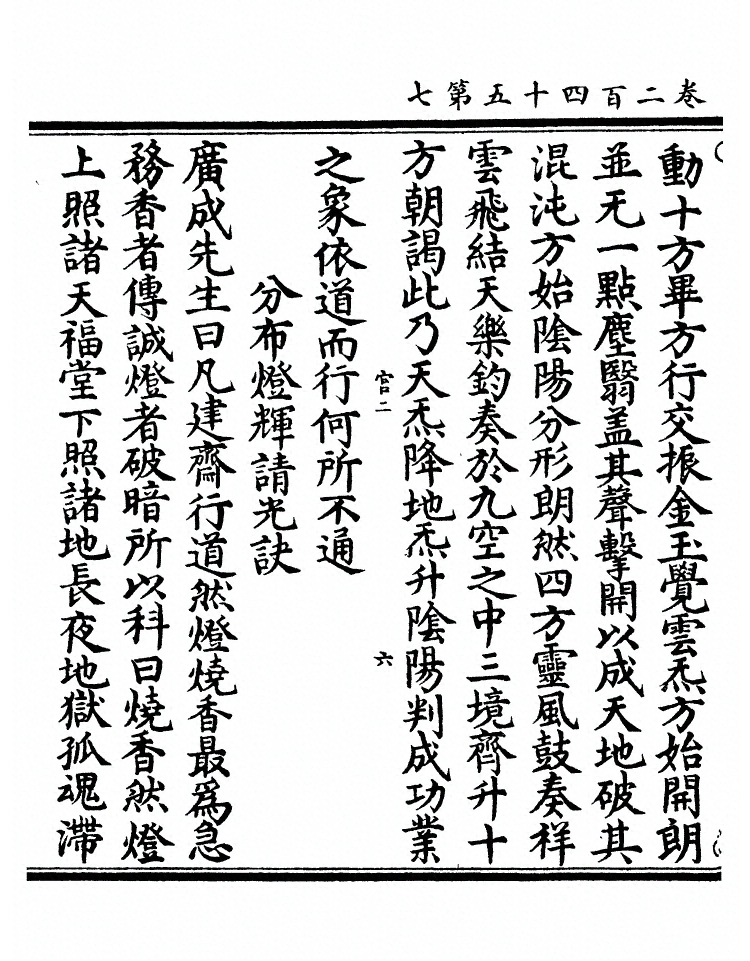 卷二百四十五第七
動十方畢方行交振金玉覺雲炁方始開朗
並无一點塵翳盖其聲擊開以成天地破其
混沌方始隂陽分形朗然四方靈風鼓奏祥
雲飛結天樂鈞奏於九空之中三境齊升十
方朝謁此乃天炁降地炁升隂陽判成功業
官二
六
之象依道而行何所不通
分布燈輝請光訣
廣成先生曰凡建齋行道然燈燒香最爲急
務香者傳誠燈者破暗所以科曰燒香然燈
上照諸天福堂下照諸地長夜地獄孤魂滯